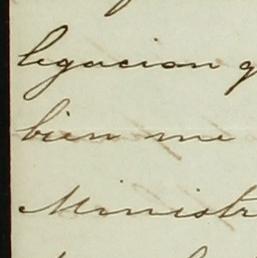 legacion q
bien me
Ministr